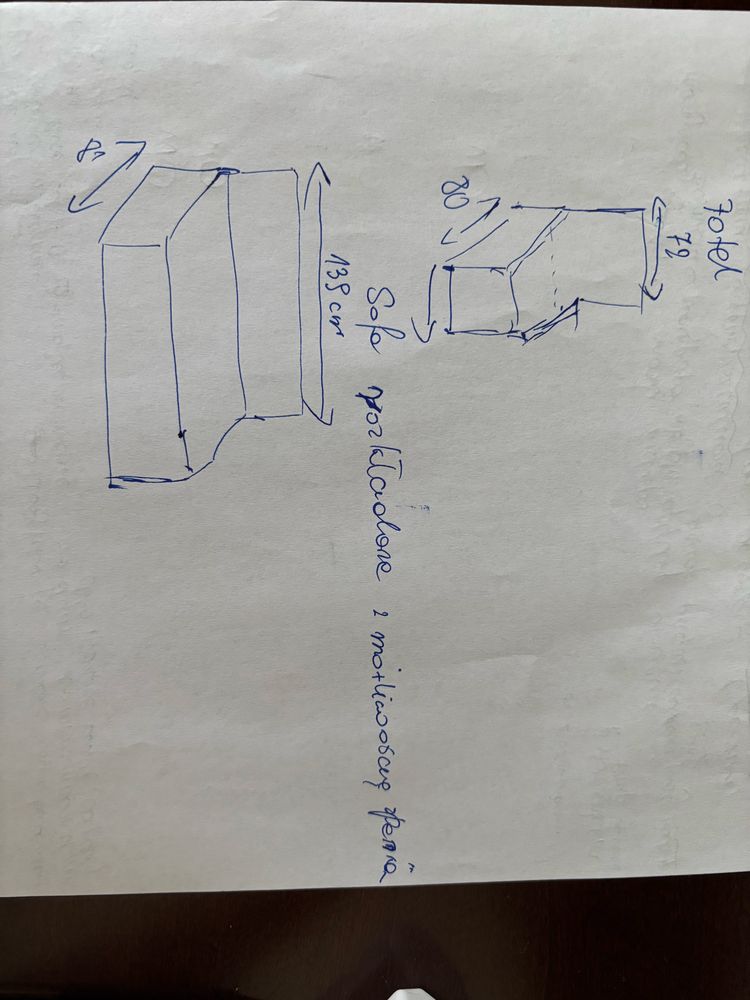 fotel
72
80
Sofa rozkładana z możliwością spania
139 cm
81